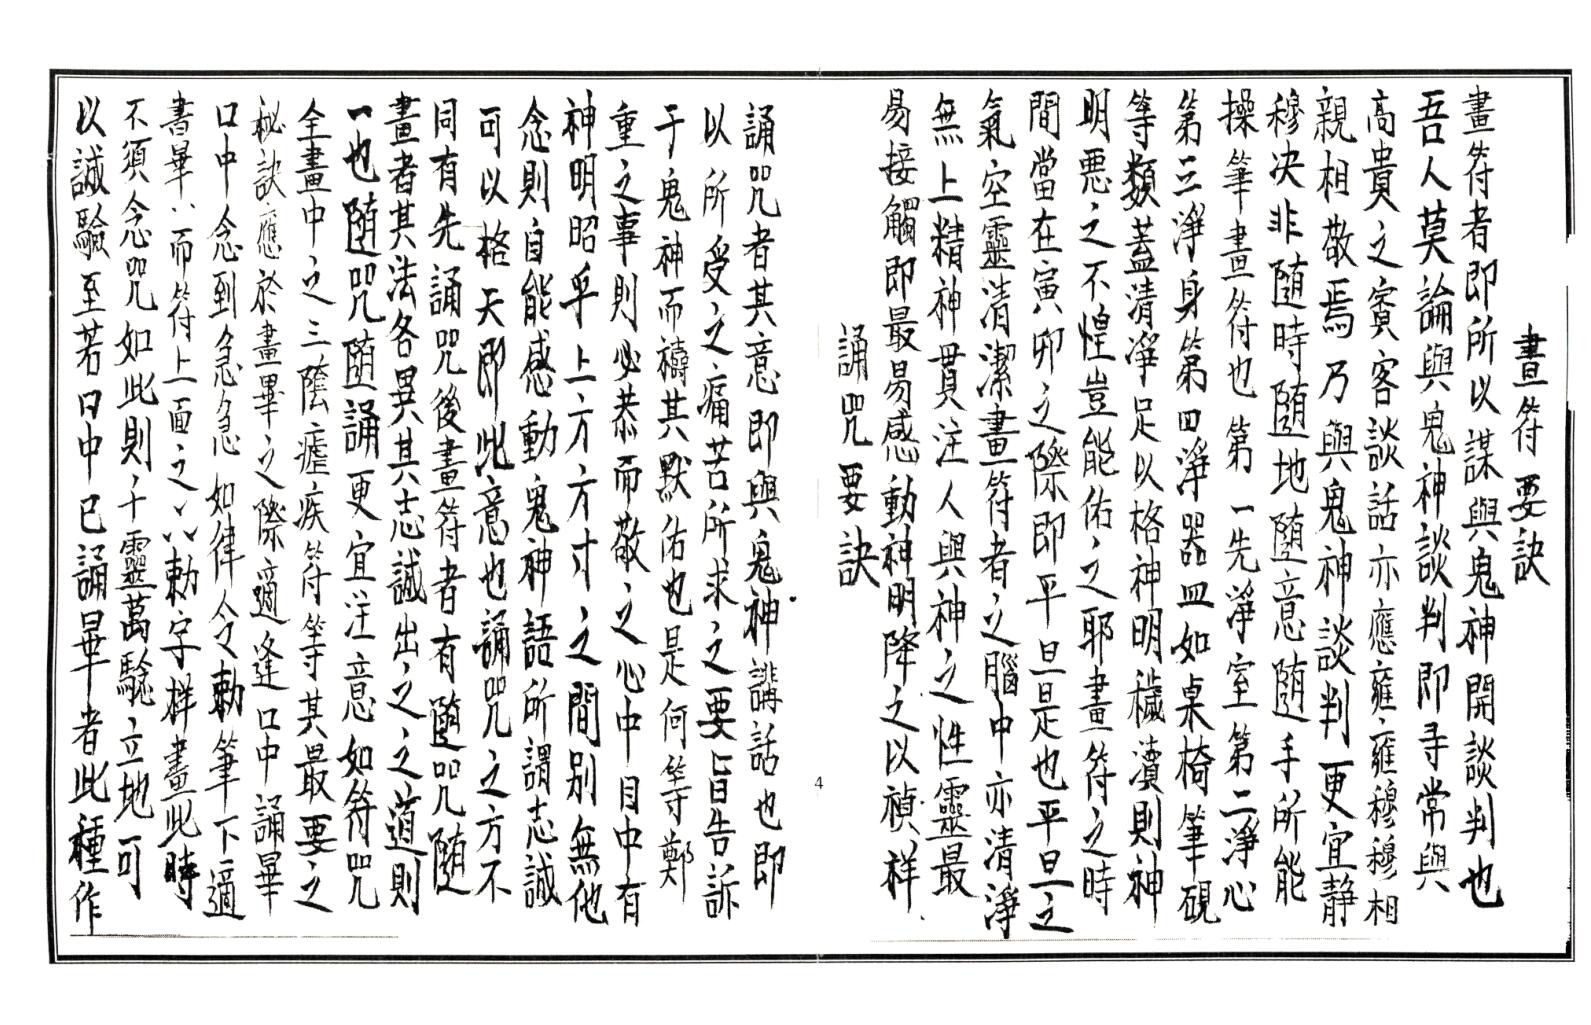 畫符要訣
畫符者即所以謀與鬼神開談判也
吾人莫論與鬼神談判即寻常與
高貴之賓客談話亦應雍雍穆穆相
親相敬焉乃與鬼神談判更宜静
穆决非随時随地随意随手所能
操筆畫符也第一先淨室第二淨心
第三淨身第四淨器皿如桌椅筆硯
等類蓋清淨足以格神明穢瀆則神
明悪之不惶豈能佑之耶畫符之時
間當在寅卯之際即平旦是也平旦之
氣空靈清潔畫符者之腦中亦清淨
無上精神貫注人與神之性靈最
易接觸即最易感動神明降之以禎祥
誦咒要訣
誦咒者其意即與鬼神講話也即
以所受之痛苦所求之要旨告訴
于鬼神而禱其默佑也是何等鄭
重之事則必恭而敬之心中目中有
神明昭乎上方方寸之間别無他
念則自能感動鬼神語所謂志誠
可以格天即此意也誦咒之方不
同有先誦咒後畫符者有随咒随
畫者其法各異其志誠出之之道則
一也随咒随誦更宜注意如符咒
全畫中之三陰瘧疾符等其最要之
秘訣應於畫畢之際適逢口中誦畢
口中念到急急如律令勅筆下適
書畢八而符上面之八勅字样畫此時
不須念咒如此則千靈萬驗立地可
以誠驗至若口中已誦畢者此種作
4